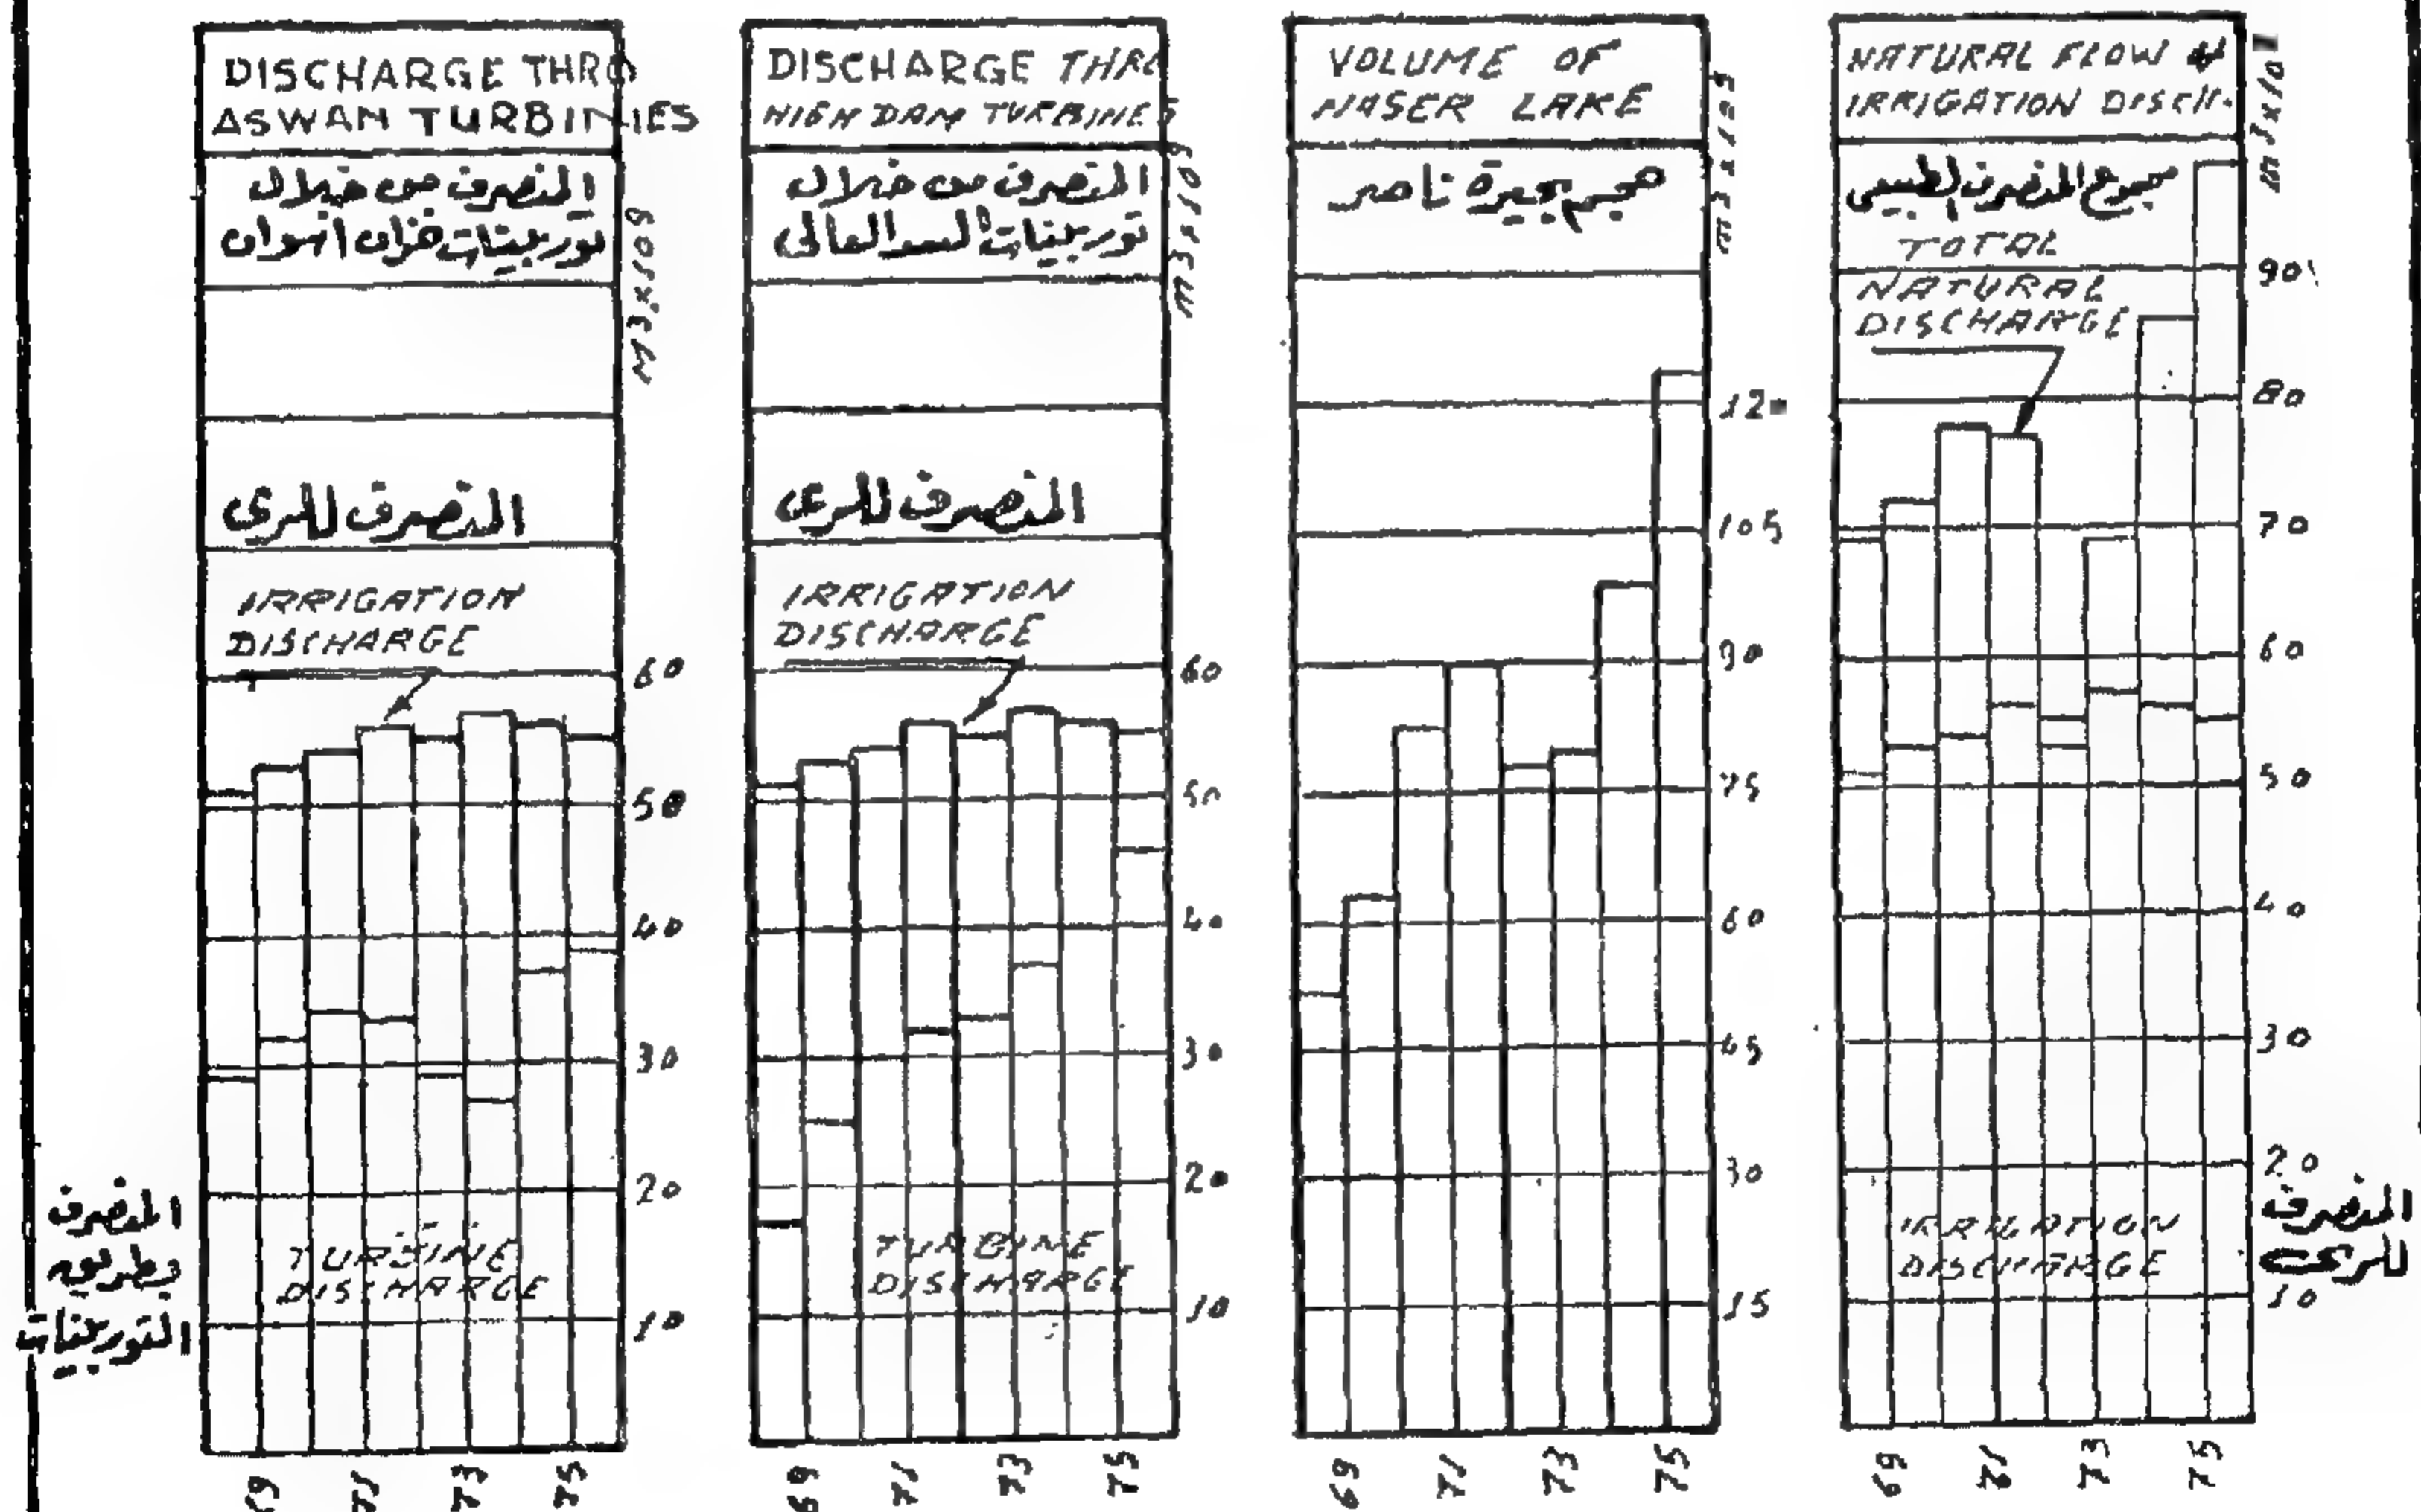 DISCHARGE THRO
ASWAN TURBINIES
المنصرف من خلال
توربينات خزان اسوان
M3×109
المنصرف للرى
IRRIGATION
DISCHARGE
60
50
40
30
20
10
TURBINE
DISCHARGE
المنصرف
بطريق
التوربينات
69
71
73
75
DISCHARGE THRO
HIGH DAM TURBINES
المنصرف من خلال
توربينات السد العالى
m3×109
المنصرف للرى
IRRIGATION
DISCHARGE
60
50
40
30
20
10
TURBINE
DISCHARGE
69
71
73
75
VOLUME OF
NASER LAKE
حجم بحيرة ناصر
120
105
90
75
60
45
30
15
69
71
73
75
NATURAL FLOW &
IRRIGATION DISCH.
مجموع المنصرف الطبيعى
TOTAL
NATURAL
DISCHARGE
90
80
70
60
50
40
30
20
10
IRRIGATION
DISCHARGE
المنصرف
للرى
69
71
73
75